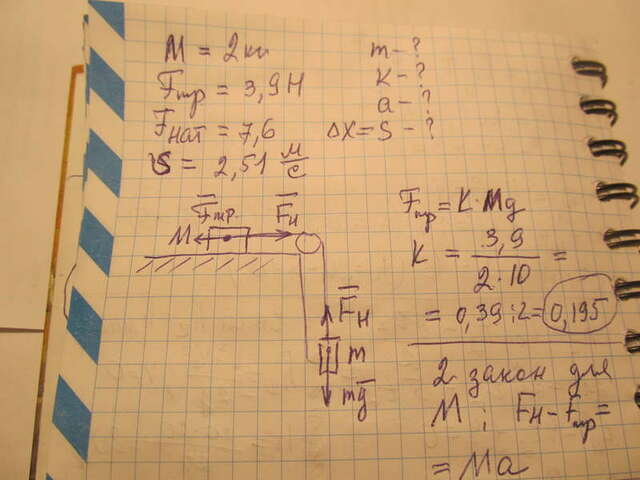 M = 2 кг
Fтр = 3,9 Н
Fнат = 7,6
υ = 2,51 м/с
m - ?
k - ?
a - ?
Δx = S - ?
M
F̅тр.
F̅н
F̅н
m
mg̅
Fтр = K·Mg
K = 3,9 / 2·10 =
= 0,39 : 2 = 0,195
2 закон для
M ; Fн - Fтр =
= Ma